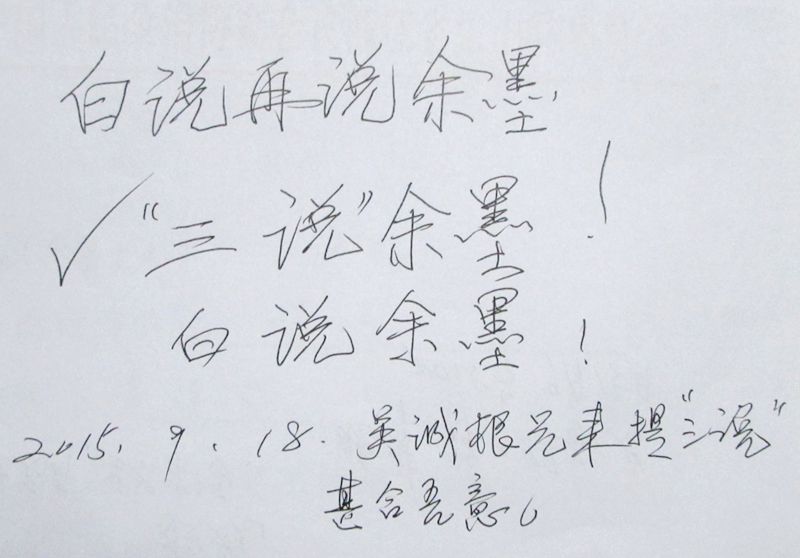 白说再说余墨
✓“三说”余墨！
白说余墨！
2015.9.18.吴诚根兄来提“三说”
甚合吾意。